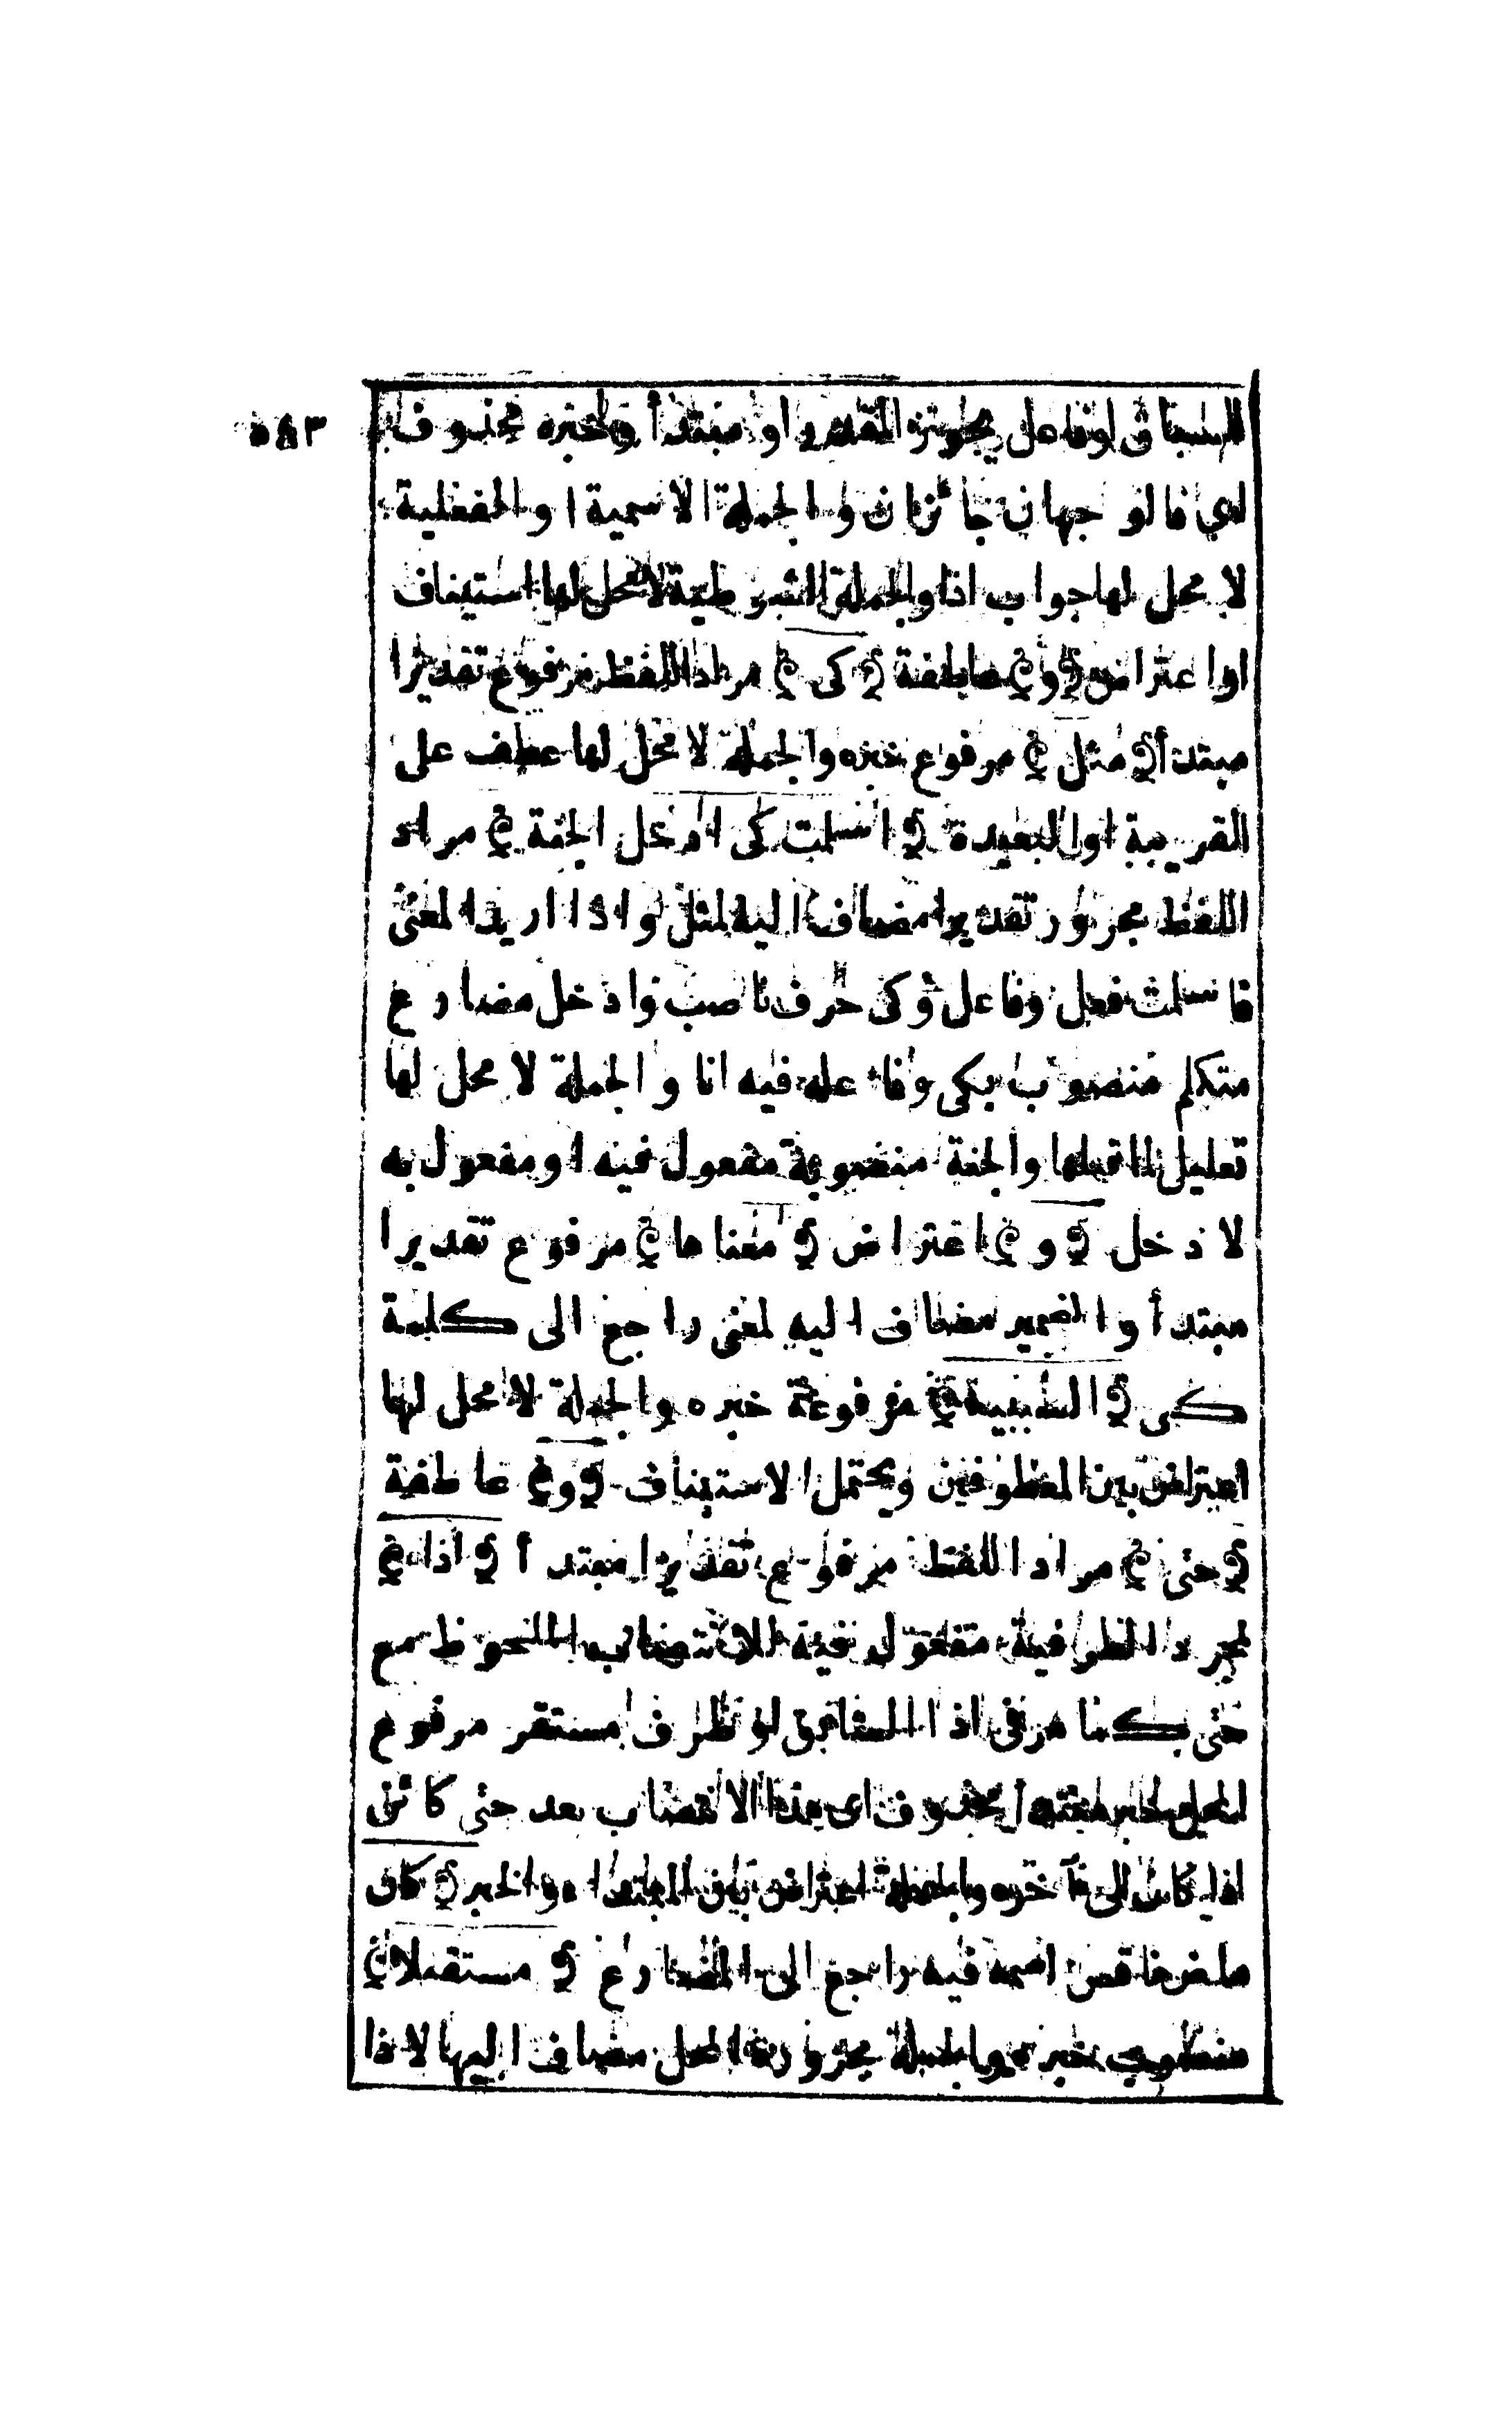 ٥٨٣
السباق او فاعل يجوز المقدر او مبتدأ وخبره محذوف
اى فالوجهان جائزان والجملة الاسمية او الفعلية
لا محل لها جواب اذا والجملة الشرطية لا محل لها استيناف
او اعتراض ﴿ و ﴾ عاطفة ﴿ كى ﴾ مراد اللفظ مرفوع تقديرا
مبتدأ ﴿ مثل ﴾ مرفوع خبره والجملة لا محل لها عطف على
القريبة او البعيدة ﴿ اسلمت كى ادخل الجنة ﴾ مراد
اللفظ مجرور تقديرا مضاف اليه لمثل واذا اريد المعنى
فاسلمت فعل وفاعل وكى حرف ناصب وادخل مضارع
متكلم منصوب بكى وفاعله فيه انا والجملة لا محل لها
تعليل لما قبلها والجنة منصوبة مفعول فيه او مفعول به
لادخل ﴿ و ﴾ اعتراض ﴿ معناها ﴾ مرفوع تقديرا
مبتدأ والضمير مضاف اليه لمعنى راجع الى كلمة
كى ﴿ السببية ﴾ مرفوعة خبره والجملة لا محل لها
اعتراض بين المعطوفين ويحتمل الاستيناف ﴿ و ﴾ عاطفة
﴿ حتى ﴾ مراد اللفظ مرفوع تقديرا مبتدأ ﴿ اذا ﴾
لمجرد الظرفية مفعول فيه للانتصاب الملحوظ مع
حتى كما مر فى اذا السابق او ظرف مستقر مرفوع
المحل خبر مبتدأ محذوف اى هذا الانتصاب بعد حتى كائن
اذا كان الى آخره والجملة اعتراض بين المبتداء والخبر ﴿ كان
ماض ناقص اسمه فيه راجع الى المضارع ﴿ مستقبلا ﴾
منصوب خبره والجملة مجرورة المحل مضاف اليها لاذا